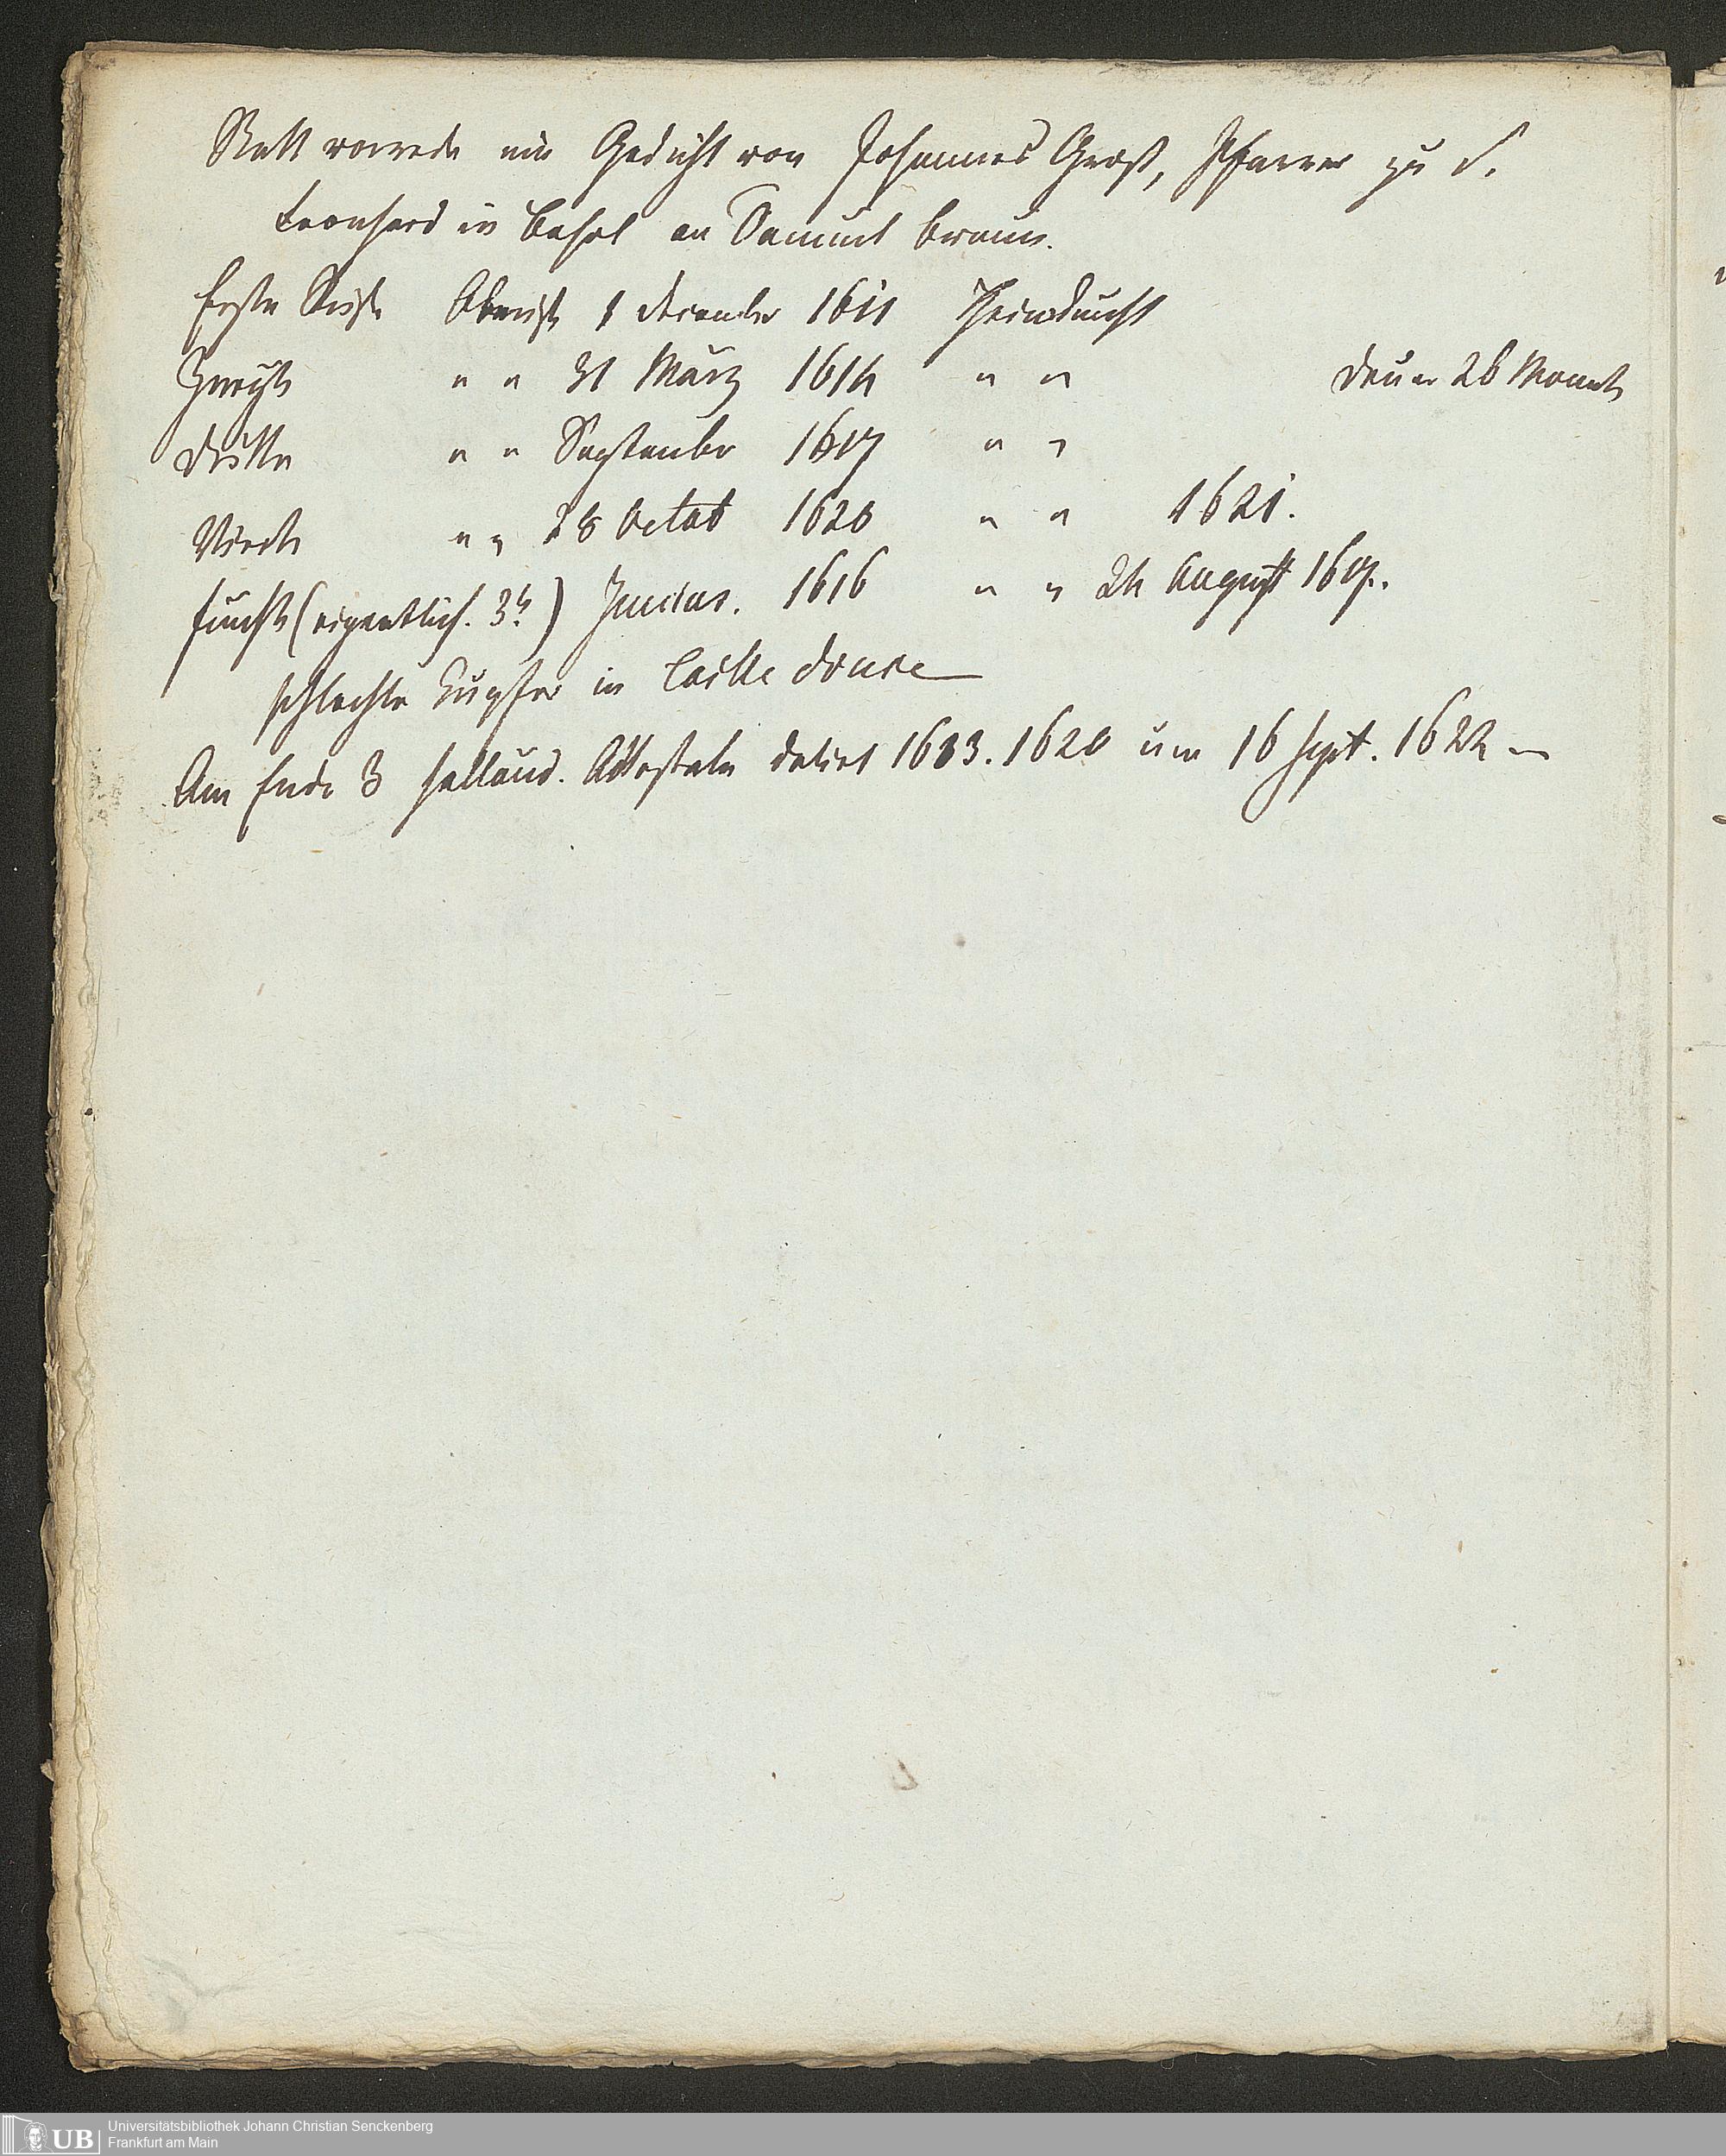 Statt vorrede ein Gedicht von Johannes Groß, Pfarrer zu S.
Leonhard in Basel an Samuel Braun.
Erste Reise Abreise 1 December 1611 Heimkunft
Zweyte " " 31 März 1614 " " Dauer 26 Monate
Dritte " " September 1617 " "
Vierte " " 28 Octob 1620 " " 1621.
fünfte (eigentlich. 3te) Junius. 1616 " " 24 August 1617.
schlechte Kupfer in taille douce
Am Ende 3 holländ. Attestate datirt 1613. 1620 16 Sept. 1622
Universitätsbibliothek Johann Christian Senckenberg
UB Frankfurt am Main